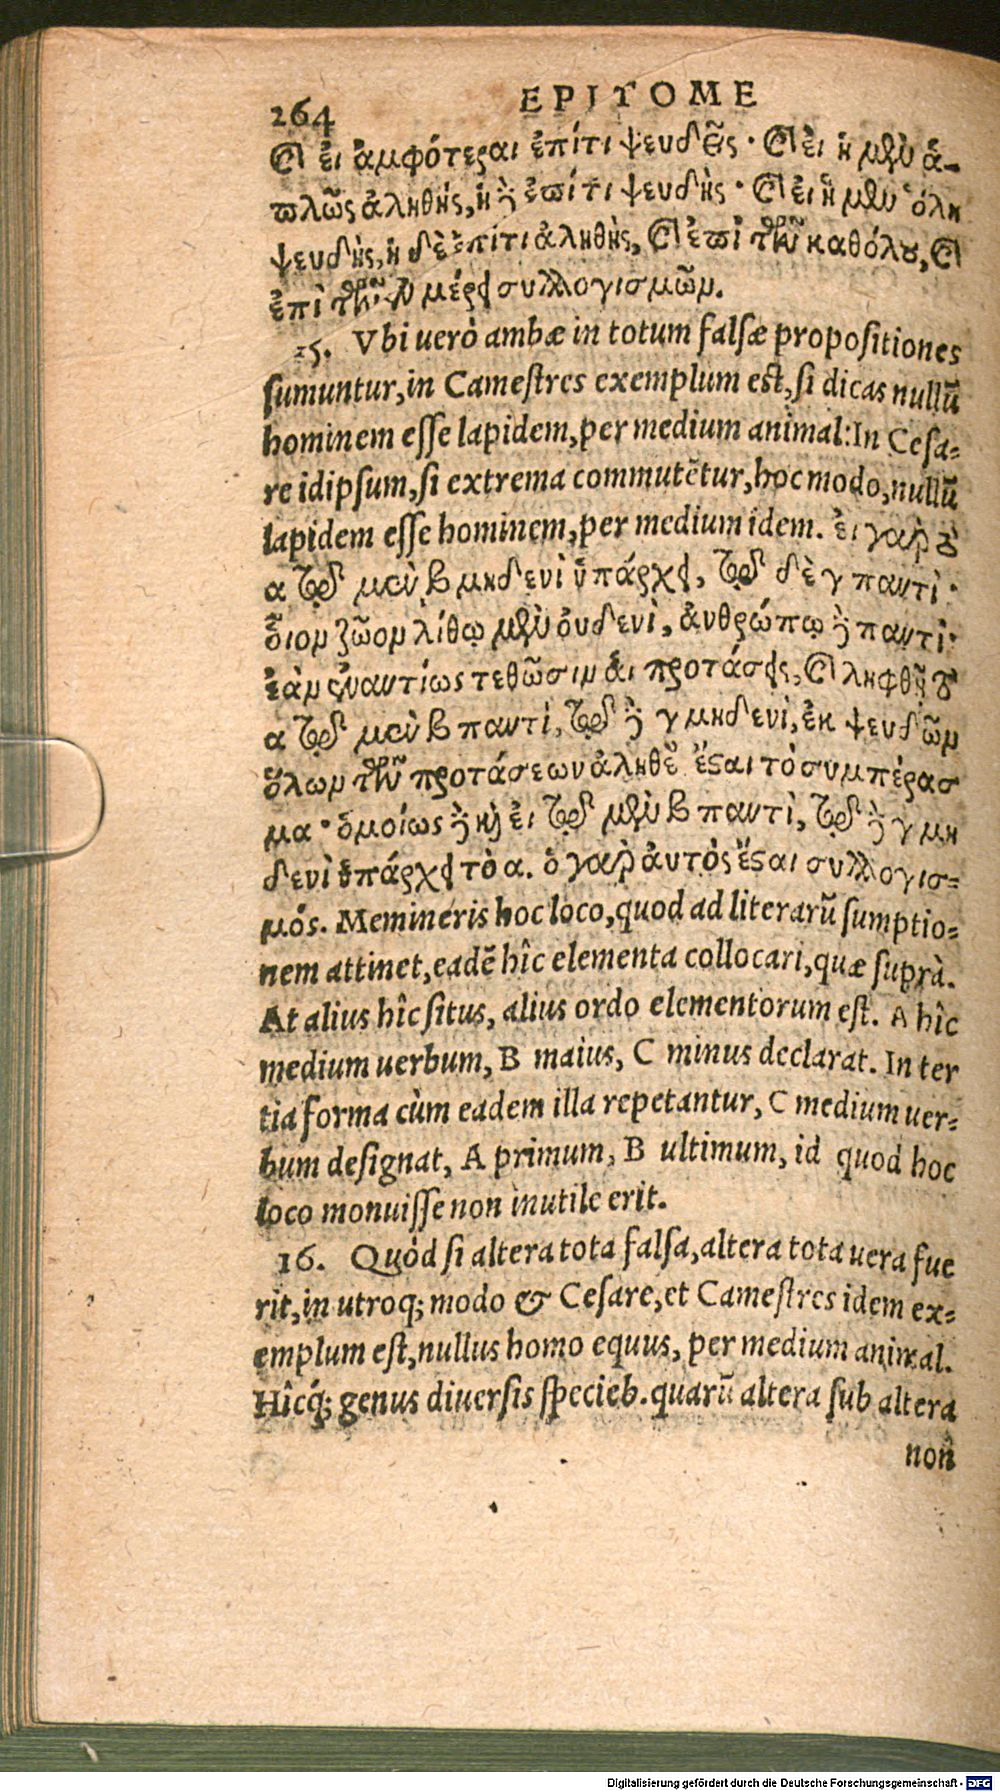 264 EPITOME
καὶ εἰ ἀμφότεραι ἐπίτι ψευδεῖς· καὶ εἰ ἡ μὲν ἁ-
πλῶς ἀληθής, ἡ δὲ ἐπίτι ψευδής· καὶ εἰ ἡ μὲν ὅλη
ψευδής, ἡ δὲ ἐπίτι ἀληθής, καὶ ἐπὶ τῶν καθόλου, καὶ
ἐπὶ τῶν ἐν μέρει συλλογισμῶν.
15. Vbi uerò ambæ in totum falsæ propositiones
sumuntur, in Camestres exemplum est, si dicas nullũ
hominem esse lapidem, per medium animal: In Cesa-
re idipsum, si extrema commutẽtur, hoc modo, nullũ
lapidem esse hominem, per medium idem. εἰ γὰρ τὸ
α τῷ μὲν β μηδενὶ ὑπάρχει, τῷ δὲ γ παντὶ·
οἷον ζῶον λίθῳ μὲν οὐδενὶ, ἀνθρώπῳ δὲ παντὶ·
ἐὰν ἐναντίως τεθῶσιν αἱ προτάσεις, καὶ ληφθῇ τὸ
α τῷ μὲν β παντὶ, τῷ δὲ γ μηδενὶ, ἐκ ψευδῶν
ὅλων τῶν προτάσεων ἀληθὲς ἔσαι τὸ συμπέρασ
μα· ὁμοίως δὲ καὶ εἰ τῷ μὲν β παντὶ, τῷ δὲ γ μη
δενὶ ὑπάρχει τὸ α. ὁ γὰρ αὐτὸς ἔσαι συλλογισ-
μός. Memineris hoc loco, quod ad literarũ sumptio-
nem attinet, eadẽ hîc elementa collocari, quæ suprà.
At alius hîc situs, alius ordo elementorum est. A hîc
medium uerbum, B maius, C minus declarat. In ter
tia forma cùm eadem illa repetantur, C medium uer-
bum designat, A primum, B ultimum, id quod hoc
loco monuisse non inutile erit.
16. Quòd si altera tota falsa, altera tota uera fue
rit, in utroq; modo & Cesare, et Camestres idem ex-
emplum est, nullus homo equus, per medium animal.
Hîcq́; genus diuersis specieb. quarũ altera sub altera
non
Digitalisierung gefördert durch die Deutsche Forschungsgemeinschaft - DFG